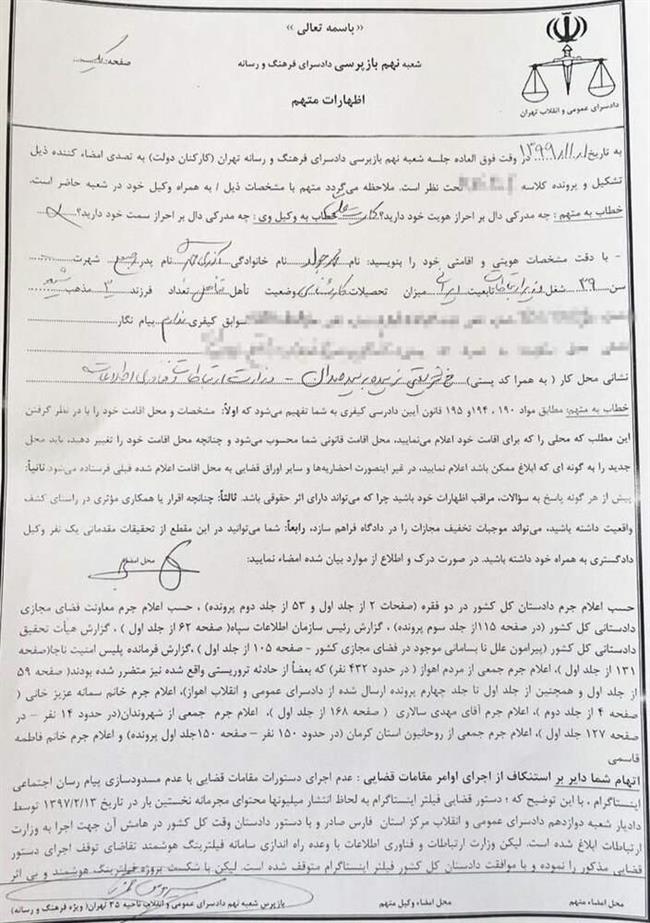 «باسمه تعالی»
شعبه نهم بازپرسی دادسرای فرهنگ و رسانه
صفحه: یک
اظهارات متهم
دادسرای عمومی و انقلاب تهران
به تاریخ ۱۳۹۹/۱۱/۱ در وقت فوق العاده جلسه شعبه نهم بازپرسی دادسرای فرهنگ و رسانه تهران (کارکنان دولت) به تصدی امضاء کننده ذیل
تشکیل و پرونده کلاسه تحت نظر است. ملاحظه می‌گردد متهم با مشخصات ذیل / به همراه وکیل خود در شعبه حاضر است.
خطاب به متهم: چه مدرکی دال بر احراز هویت خود دارید؟ کارت ملی خطاب به وکیل وی: چه مدرکی دال بر احراز سمت خود دارید؟
- با دقت مشخصات هویتی و اقامتی خود را بنویسید: نام محمدجواد نام خانوادگی آذری جهرمی نام پدر شهرت
سن ۳۹ شغل وزیر ارتباطات تابعیت ایران میزان تحصیلات کارشناسی وضعیت تأهل متأهل تعداد فرزند ۳ مذهب شیعه
سوابق کیفری ندارم پیام نگار
نشانی محل کار (به همرا کد پستی) خ شریعتی نرسیده به سیدخندان - وزارت ارتباطات و فناوری اطلاعات
خطاب به متهم: مطابق مواد ۱۹۰، ۱۹۴و ۱۹۵ قانون آیین دادرسی کیفری به شما تفهیم می‌شود که اولاً: مشخصات و محل اقامت خود را با در نظر گرفتن
این مطلب که محلی را که برای اقامت خود اعلام می‌نمایید، محل اقامت قانونی شما محسوب می‌شود و چنانچه محل اقامت خود را تغییر دهید، باید محل
جدید را به گونه ای که ابلاغ ممکن باشد اعلام نمایید، در غیر اینصورت احضاریه‌ها و سایر اوراق قضایی به محل اقامت اعلام شده قبلی فرستاده می‌شود ثانیاً:
پیش از هر گونه پاسخ به سؤالات، مراقب اظهارات خود باشید چرا که می‌تواند دارای اثر حقوقی باشد. ثالثاً: چنانچه اقرار یا همکاری مؤثری در راستای کشف
واقعیت داشته باشید، می‌تواند موجبات تخفیف مجازات را در دادگاه فراهم سازد، رابعاً: شما می‌توانید در این مقطع از تحقیقات مقدماتی یک نفر وکیل
دادگستری به همراه خود داشته باشید. در صورت درک و اطلاع از موارد بیان شده امضاء نمایید: محل امضاء
حسب اعلام جرم دادستان کل کشور در دو فقره (صفحات ۲ از جلد اول و ۵۳ از جلد دوم پرونده)، حسب اعلام جرم معاونت فضای مجازی
دادستانی کل کشور (در صفحه ۱۱۵از جلد سوم پرونده)، گزارش رئیس سازمان اطلاعات سپاه( صفحه ۶۲ از جلد اول )، گزارش هیأت تحقیق
دادستانی کل کشور (پیرامون علل نا بسامانی موجود در فضای مجازی کشور - صفحه ۱۰۵ از جلد اول )،گزارش فرمانده پلیس امنیت ناجا(صفحه
۱۳۱ از جلد اول)، اعلام جرم جمعی از مردم اهواز ( در حدود ۴۳۲ نفر) که بعضاً از حادثه تروریستی واقع شده نیز متضرر شده بودند( صفحه ۵۹
از جلد اول و همچنین از جلد اول تا جلد چهارم پرونده ارسال شده از دادسرای عمومی و انقلاب اهواز)، اعلام جرم خانم سمانه عزیز خانی (
صفحه ۴ از جلد دوم )، اعلام جرم آقای مهدی سالاری ( صفحه ۱۶۸ از جلد اول )، اعلام جرم جمعی از شهروندان(در حدود ۱۴ نفر - در
صفحه ۱۲۷ جلد اول)، اعلام جرم جمعی از روحانیون استان کرمان (در حدود ۱۵۰ نفر - صفحه ۱۵۰جلد اول پرونده) و اعلام جرم خانم فاطمه
قاسمی
اتهام شما دایر بر استنکاف از اجرای اوامر مقامات قضایی : عدم اجرای دستورات مقامات قضایی با عدم مسدودسازی پیام رسان اجتماعی
اینستاگرام ، با این توضیح که ؛ دستور قضایی فیلتر اینستاگرام به لحاظ انتشار میلیونها محتوای مجرمانه نخستین بار در تاریخ ۱۳۹۷/۲/۱۳ توسط
دادیار شعبه دوازدهم دادسرای عمومی و انقلاب مرکز استان فارس صادر و با دستور دادستان وقت کل کشور در هامش آن جهت اجرا به وزارت
ارتباطات ابلاغ شده است. لیکن وزارت ارتباطات و فناوری اطلاعات با وعده راه اندازی سامانه فیلترینگ هوشمند تقاضای توقف اجرای دستور
قضایی مذکور را نموده و با موافقت دادستان کل کشور فیلتر اینستاگرام متوقف شده است. لیکن با شکست پروژه فیلترینگ هوشمند و بی اثر
محل امضاء متهم
محل امضاء وکیل متهم
بازپرس شعبه نهم دادسرای عمومی و انقلاب ناحیه ۳۵ تهران (ویژه فرهنگ و رسانه)